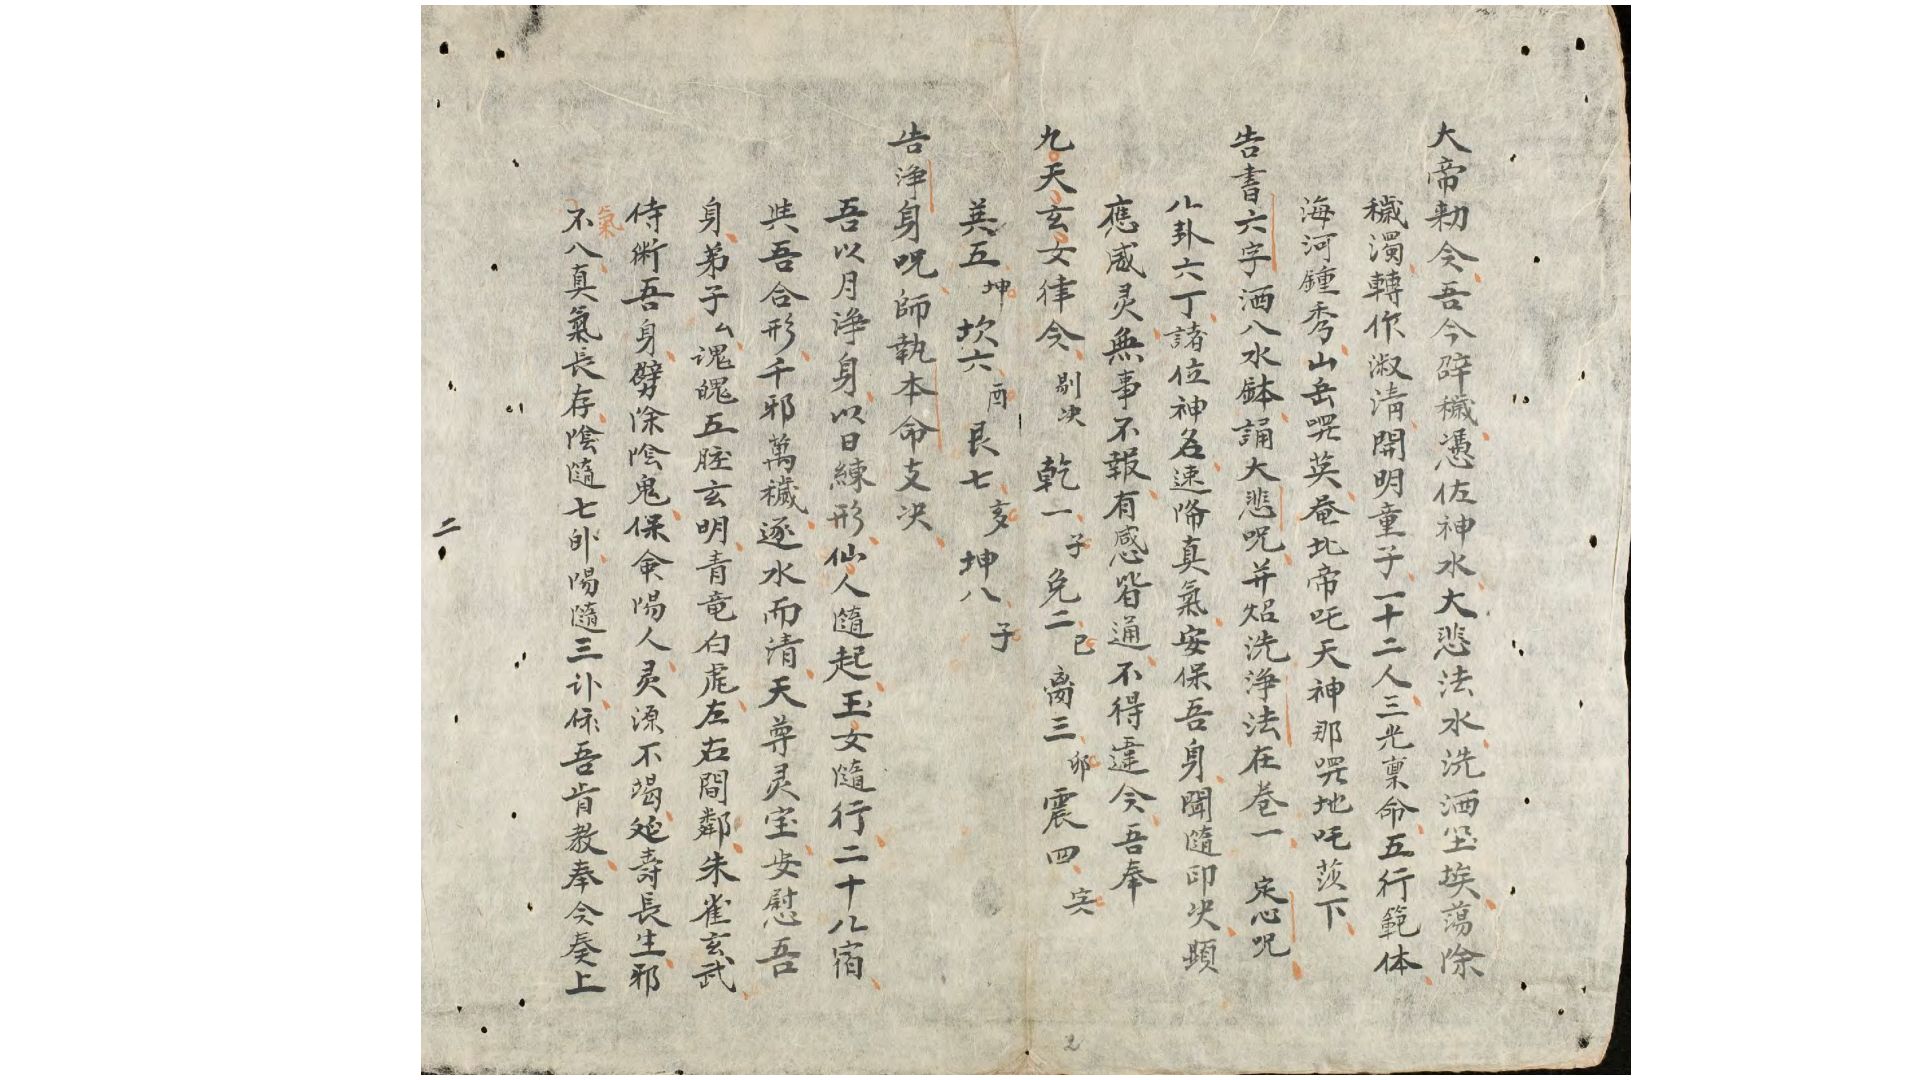 大帝勅令吾今辟穢憑佐神水大悲法水洗洒坌埃蕩除
穢濁轉作淑清開明童子一十二人三光稟命五行範体
海河鍾秀山岳哭英奄北帝吒天神那哭地吒茨下
告書六字洒八水鉢誦大悲咒并炤洗淨法在卷一 定心咒
八卦六丁諸位神名速降真氣安保吾身聞隨印决顕
應咸灵無事不報有感皆通不得違令吾奉
九天玄女律令 剔决 乾一 子 兌二 巳 离三 卯 震四 亥
巽五 坤 坎六 酉 艮七 亥 坤八 子
告淨身呪師執本命支决
吾以月淨身以日練形仙人隨起玉女隨行二十八宿
共吾合形千邪萬穢逐水而清天尊灵宝安慰吾
身弟子厶魂魄五脏玄明青竜白虎左右間鄰朱雀玄武
侍衛吾身劈除陰鬼保命陽人灵源不竭延壽長生邪氣
不八真氣長存陰隨七卦陽隨三卟依吾肯教奉令奏上
二
2